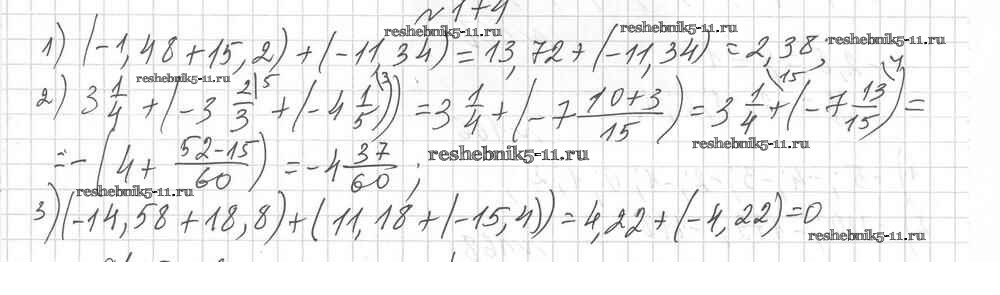 № 174
reshebnik5-11.ru reshebnik5-11.ru
1) (-1,48+15,2)+(-11,34)=13,72+(-11,34)=2,38, reshebnik5-11.ru
reshebnik5-11.ru
2) 3 1/4 + (-3 2/3|5 + (-4 1/5|3)) = 3 1/4 + (-7 (10+3)/15) = 3 1/4|15 + (-7 13/15|4) =
reshebnik5-11.ru
= -(4 + (52-15)/60) = -4 37/60; reshebnik5-11.ru
reshebnik5-11.ru
3) (-14,58+18,8)+(11,18+(-15,4))=4,22+(-4,22)=0
reshebnik5-11.ru